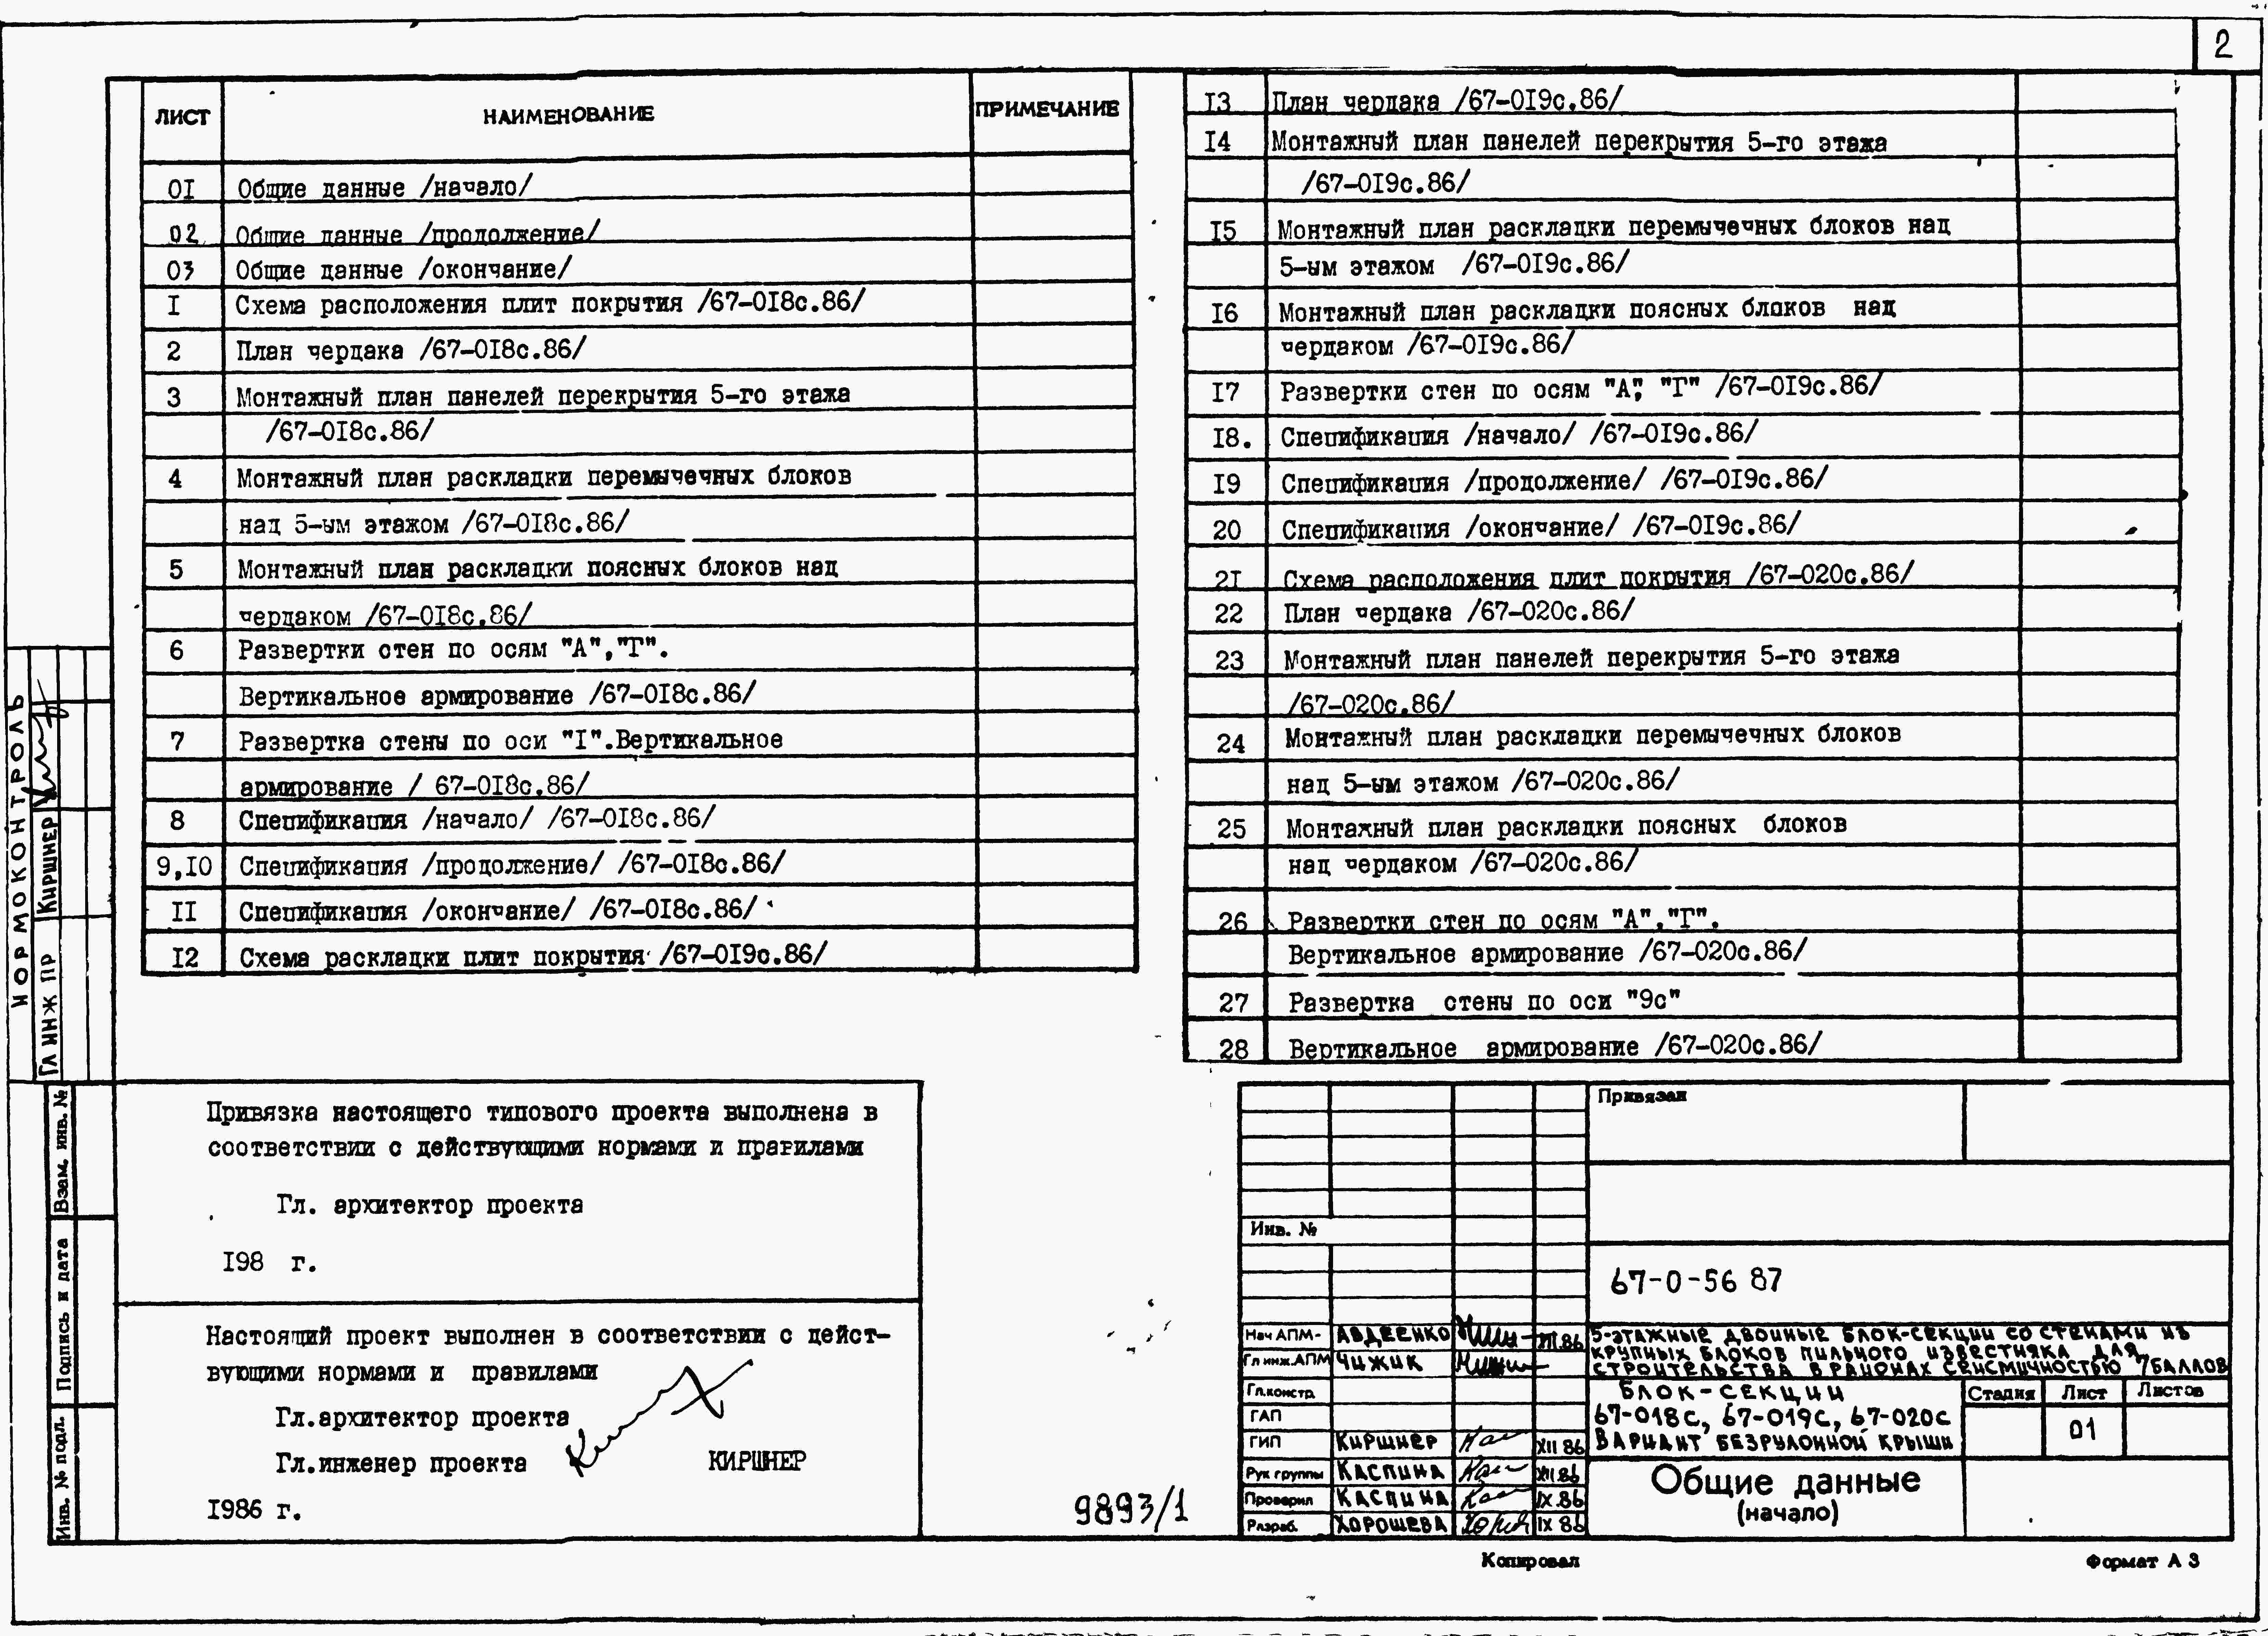 2
ЛИСТ НАИМЕНОВАНИЕ ПРИМЕЧАНИЕ
01 Общие данные /начало/
02 Общие данные /продолжение/
03 Общие данные /окончание/
I Схема расположения плит покрытия /67-018с.86/
2 План чердака /67-018с.86/
3 Монтажный план панелей перекрытия 5-го этажа
/67-018с.86/
4 Монтажный план раскладки перемычечных блоков
над 5-ым этажом /67-018с.86/
5 Монтажный план раскладки поясных блоков над
чердаком /67-018с.86/
6 Развертки стен по осям "А","Г".
Вертикальное армирование /67-018с.86/
7 Развертка стены по оси "I".Вертикальное
армирование / 67-018с.86/
8 Спецификация /начало/ /67-018с.86/
9,10 Спецификация /продолжение/ /67-018с.86/
II Спецификация /окончание/ /67-018с.86/
12 Схема раскладки плит покрытия /67-019с.86/
13 План чердака /67-019с.86/
14 Монтажный план панелей перекрытия 5-го этажа
/67-019с.86/
15 Монтажный план раскладки перемычечных блоков над
5-ым этажом /67-019с.86/
16 Монтажный план раскладки поясных блоков над
чердаком /67-019с.86/
17 Развертки стен по осям "А", "Г" /67-019с.86/
18. Спецификация /начало/ /67-019с.86/
19 Спецификация /продолжение/ /67-019с.86/
20 Спецификация /окончание/ /67-019с.86/
21 Схема расположения плит покрытия /67-020с.86/
22 План чердака /67-020с.86/
23 Монтажный план панелей перекрытия 5-го этажа
/67-020с.86/
24 Монтажный план раскладки перемычечных блоков
над 5-ым этажом /67-020с.86/
25 Монтажный план раскладки поясных блоков
над чердаком /67-020с.86/
26 Развертки стен по осям "А","Г".
Вертикальное армирование /67-020с.86/
27 Развертка стены по оси "9с"
28 Вертикальное армирование /67-020с.86/
НОРМОКОНТРОЛЬ
ГЛ ИНЖ ПР КИРШНЕР
Взам. инв. №
Подпись и дата
Инв. № подл.
Привязка настоящего типового проекта выполнена в
соответствии с действующими нормами и правилами
Гл. архитектор проекта
198 г.
Настоящий проект выполнен в соответствии с дейст-
вующими нормами и правилами
Гл.архитектор проекта
Гл.инженер проекта КИРШНЕР
1986 г.
9893/1
Привязан
Инв. №
67-0-56 87
Нач АПМ- АВДЕЕНКО
Гл инж.АПМ ЧИЖИК
Гл.констр.
ГАП
ГИП КИРШНЕР XII 86
Рук группы КАСПИНА XII.86
Проверил КАСПИНА IX.86
Разраб. ХОРОШЕВА IX 86
5-ЭТАЖНЫЕ ДВОЙНЫЕ БЛОК-СЕКЦИИ СО СТЕНАМИ ИЗ
КРУПНЫХ БЛОКОВ ПИЛЬНОГО ИЗВЕСТНЯКА ДЛЯ
СТРОИТЕЛЬСТВА В РАЙОНАХ СЕЙСМИЧНОСТЬЮ 7 БАЛЛОВ
БЛОК-СЕКЦИИ
67-018С, 67-019С, 67-020С
ВАРИАНТ БЕЗРУЛОННОЙ КРЫШИ
Стадия Лист Листов
01
Общие данные
(начало)
Копировал
Формат А 3